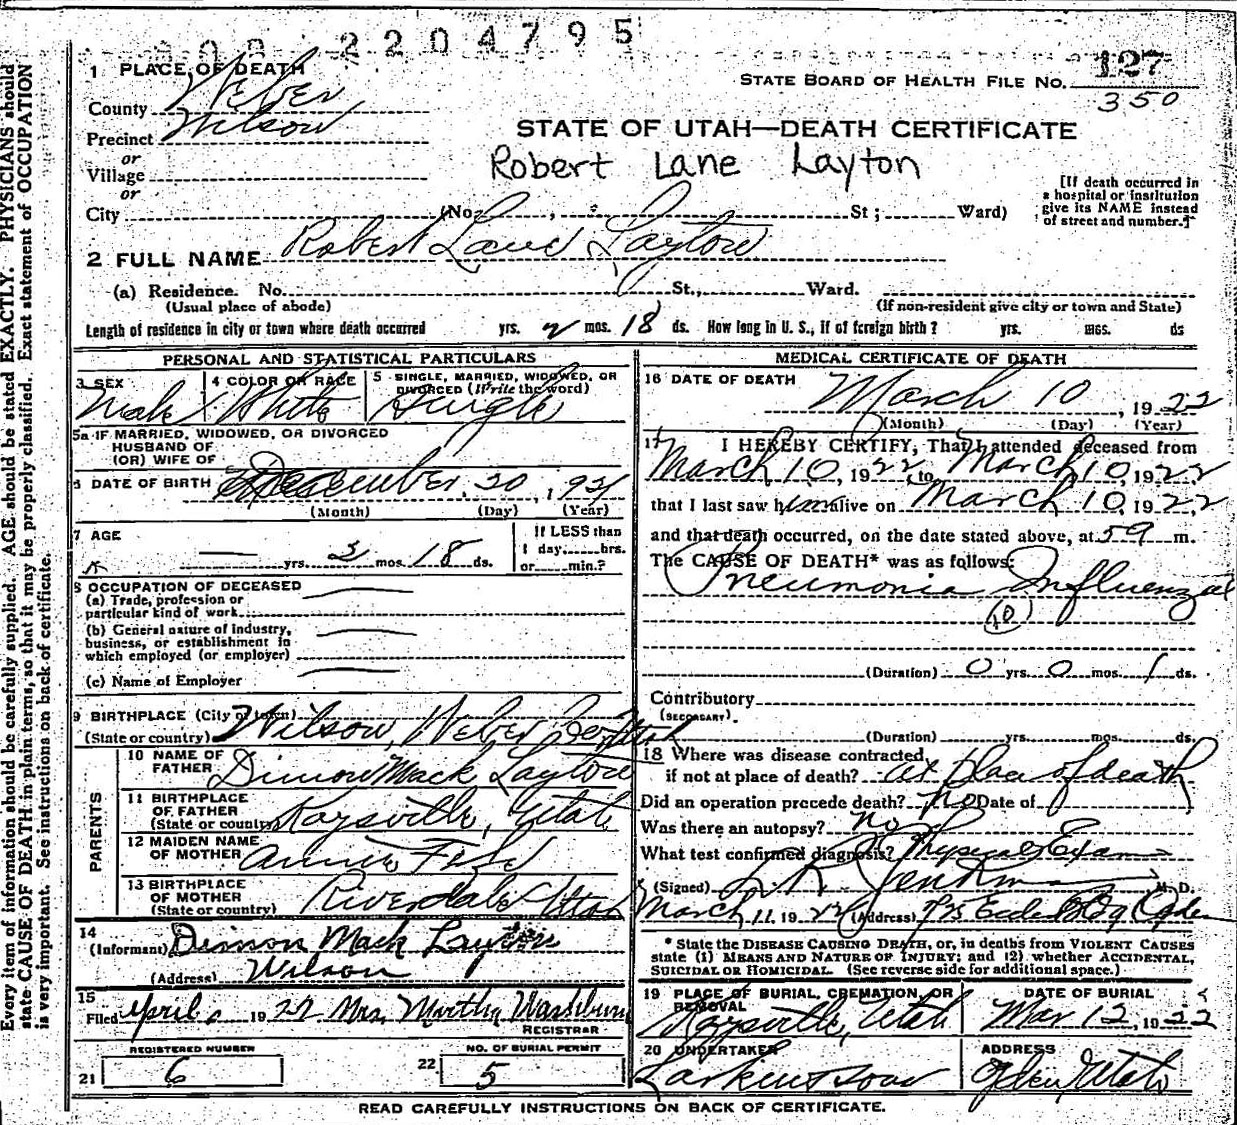 2204795
1 PLACE OF DEATH
STATE BOARD OF HEALTH FILE NO. 127
350
County Weber
Precinct Wilson
or
Village
or
City (No. , St ; Ward)
STATE OF UTAH—DEATH CERTIFICATE
Robert Lane Layton
[If death occurred in
a hospital or institution
give its NAME instead
of street and number.]
2 FULL NAME Robert Lane Layton
(a) Residence. No. St., Ward.
(Usual place of abode) (If non-resident give city or town and State)
Length of residence in city or town where death occurred yrs. 2 mos. 18 ds. How long in U. S., if of foreign birth ? yrs. mos. ds
PERSONAL AND STATISTICAL PARTICULARS
3 SEX
Male
4 COLOR OR RACE
White
5 SINGLE, MARRIED, WIDOWED, OR
DIVORCED (Write the word)
Single
5a IF MARRIED, WIDOWED, OR DIVORCED
HUSBAND OF
(OR) WIFE OF
6 DATE OF BIRTH December 20, 1921
(Month) (Day) (Year)
7 AGE
yrs. mos. 18 ds.
If LESS than
1 day......hrs.
or......min.?
8 OCCUPATION OF DECEASED
(a) Trade, profession or
particular kind of work
(b) General nature of industry,
business, or establishment in
which employed (or employer)
(c) Name of Employer
9 BIRTHPLACE (City or town)
(State or country) Wilson, Weber Utah
PARENTS
10 NAME OF
FATHER Dimon Mack Layton
11 BIRTHPLACE
OF FATHER
(State or country) Kaysville, Utah
12 MAIDEN NAME
OF MOTHER Annie
13 BIRTHPLACE
OF MOTHER
(State or country) Riverdale Utah
14
(Informant) Dimon Mack Layton
(Address) Wilson
15
Filed April 6 1922 Mrs. Martha Washburn
REGISTRAR
REGISTERED NUMBER
21 6
NO. OF BURIAL PERMIT
22 5
MEDICAL CERTIFICATE OF DEATH
16 DATE OF DEATH March 10, 1922
(Month) (Day) (Year)
17 I HEREBY CERTIFY, That I attended deceased from
March 10, 1922, to March 10, 1922
that I last saw him alive on March 10, 1922
and that death occurred, on the date stated above, at 59 m.
The CAUSE OF DEATH* was as follows:
Pneumonia Influenzal
10
(Duration) 0 yrs. 0 mos. 1 ds.
Contributory
(SECONDARY).
(Duration) yrs. mos. ds.
18 Where was disease contracted,
if not at place of death? at place of death
Did an operation precede death? no Date of
Was there an autopsy? no
What test confirmed diagnosis? Physical Exam
(Signed) Jenkins M. D.
March 11, 1922 (Address) Bldg Ogden
* State the DISEASE CAUSING DEATH, or, in deaths from VIOLENT CAUSES
state (1) MEANS AND NATURE OF INJURY; and (2) whether ACCIDENTAL,
SUICIDAL OR HOMICIDAL. (See reverse side for additional space.)
19 PLACE OF BURIAL, CREMATION, OR
REMOVAL
Kaysville, Utah
DATE OF BURIAL
Mar 12, 1922
20 UNDERTAKER
Larkin & Sons
ADDRESS
Ogden Utah
READ CAREFULLY INSTRUCTIONS ON BACK OF CERTIFICATE.
Every item of information should be carefully supplied. AGE should be stated EXACTLY. PHYSICIANS should
state CAUSE OF DEATH in plain terms, so that it may be properly classified. Exact statement of OCCUPATION
is very important. See instructions on back of certificate.